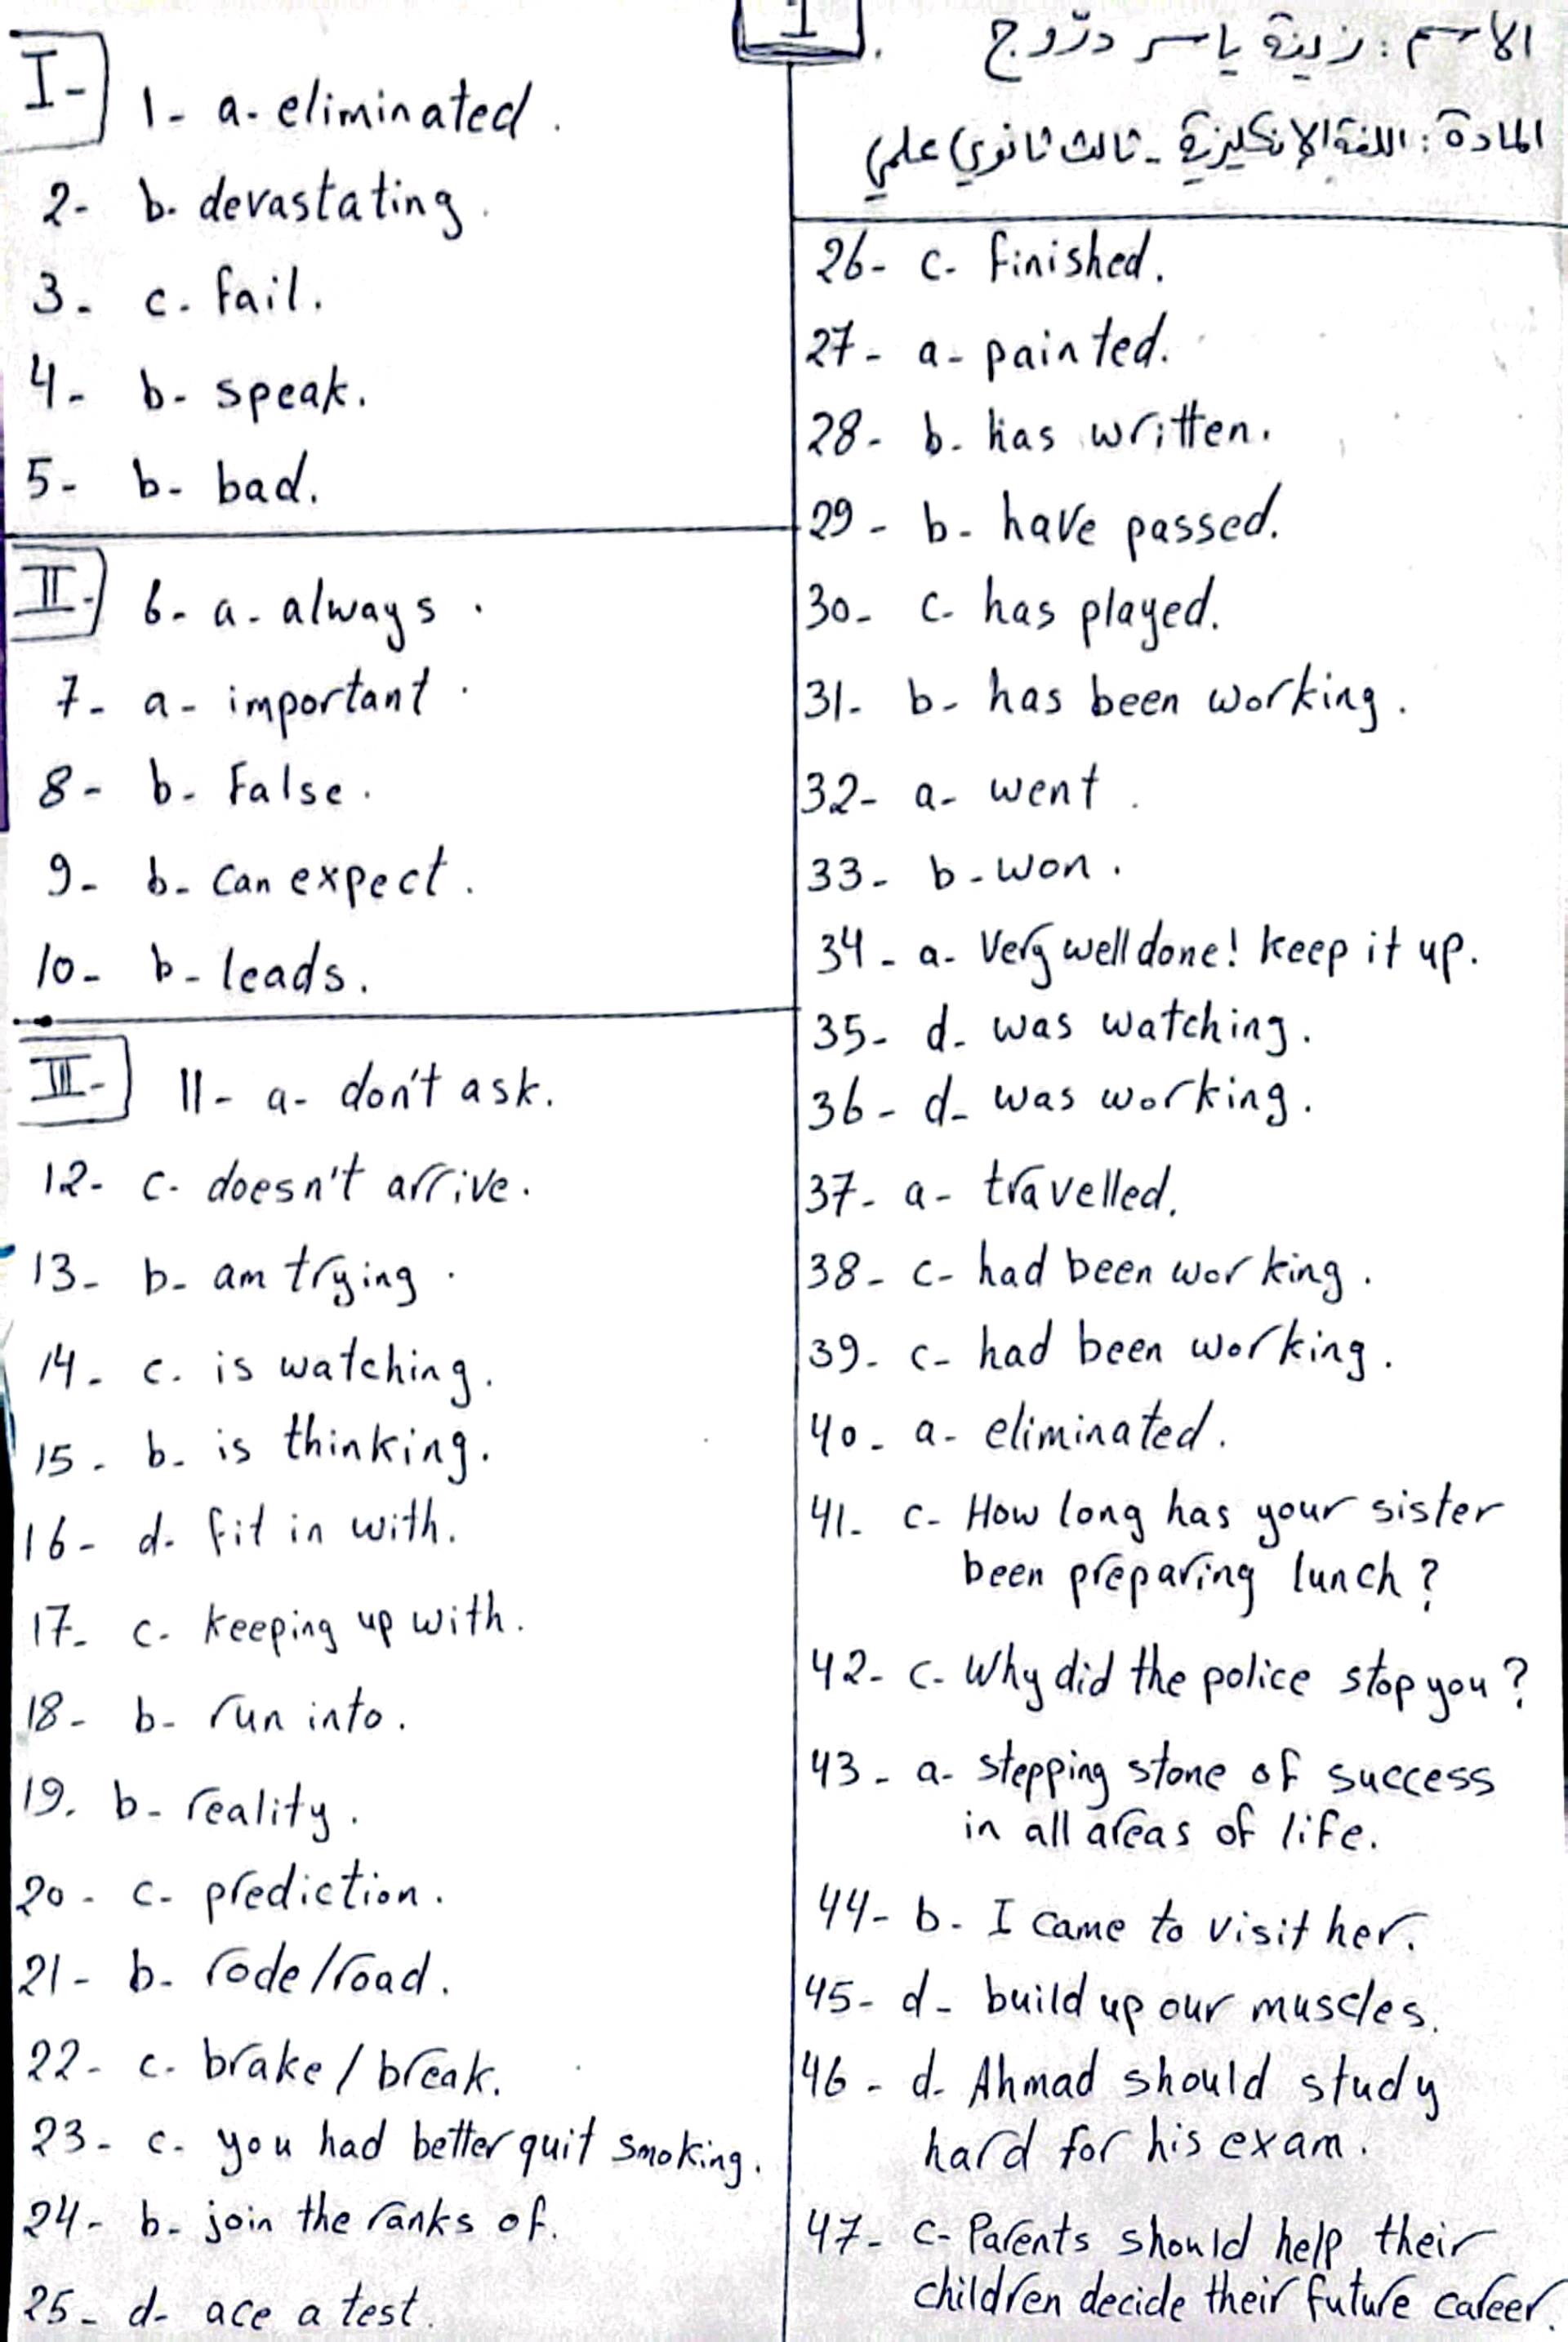 1
الاسم : زينة ياسر درّوج
المادة : اللغة الإنكليزية - ثالث ثانوي علمي
I-
1- a- eliminated.
2- b. devastating.
3- c. fail.
4- b- speak.
5- b- bad.
II-
6- a- always.
7- a- important.
8- b. False.
9- b- can expect.
10- b- leads.
III-
11- a- don't ask.
12- c. doesn't arrive.
13- b- am trying.
14- c. is watching.
15- b- is thinking.
16- d. fit in with.
17- c- keeping up with.
18- b- run into.
19. b- reality.
20- c- prediction.
21- b- rode/road.
22- c- brake/break.
23- c. you had better quit smoking.
24- b- join the ranks of.
25- d- ace a test.
26- c- finished.
27- a- painted.
28- b- has written.
29- b- have passed.
30- c- has played.
31- b- has been working.
32- a- went.
33- b- won.
34- a- Very well done! keep it up.
35- d- was watching.
36- d- was working.
37- a- travelled.
38- c- had been working.
39- c- had been working.
40- a- eliminated.
41- c- How long has your sister
been preparing lunch?
42- c- Why did the police stop you?
43- a- stepping stone of success
in all areas of life.
44- b- I came to visit her.
45- d- build up our muscles.
46- d- Ahmad should study
hard for his exam.
47- c- Parents should help their
children decide their future career.